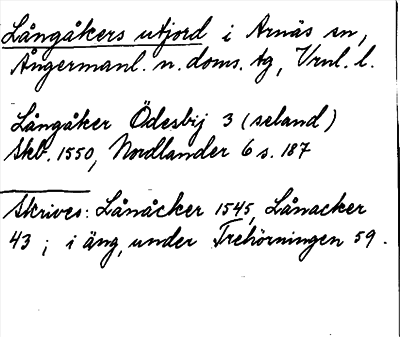 Långåkers utjord i Arnäs sn,
Ångermanl. n. doms. tg, Vrnl. l.
Långåker Ödesbij 3 (seland)
Skb. 1550, Nordlander 6 s. 187
Skrives: Lånåcker 1545, Lånacker
43; i äng, under Trehörningen 59.